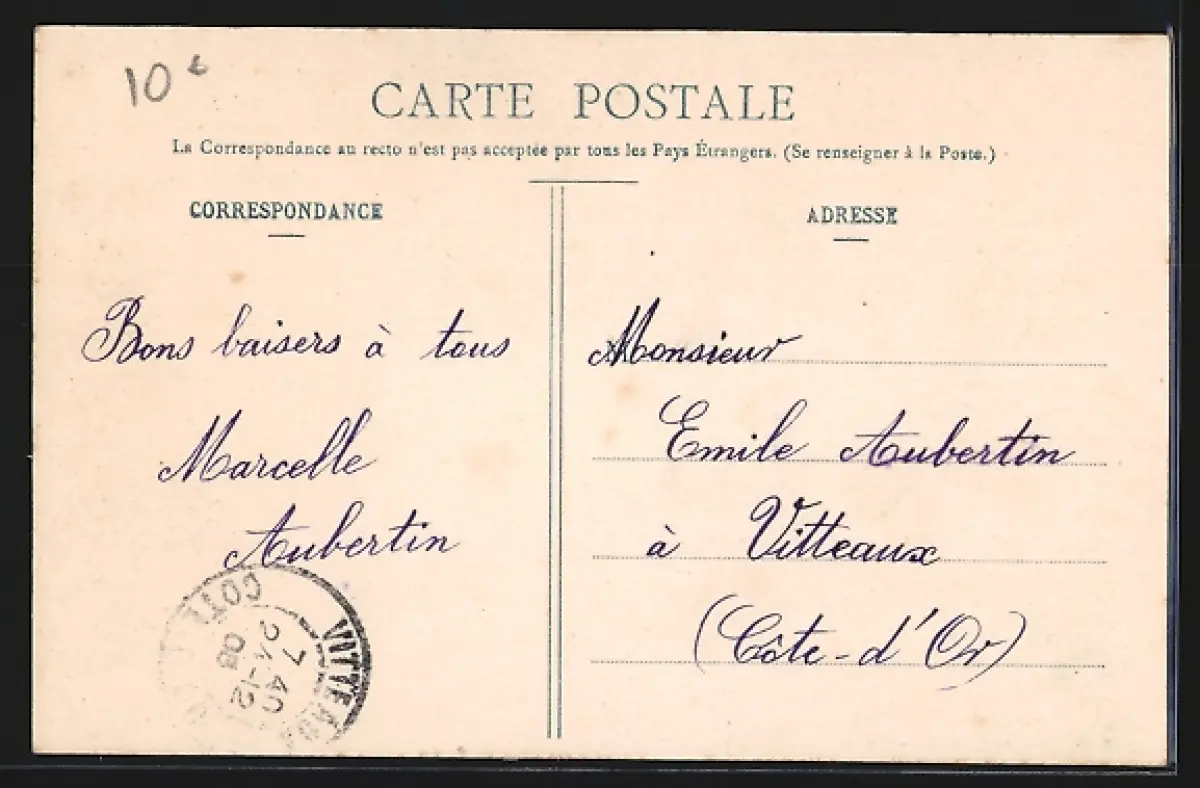 10€
CARTE POSTALE
La Correspondance au recto n'est pas acceptée par tous les Pays Étrangers. (Se renseigner à la Poste.)
CORRESPONDANCE
ADRESSE
Bons baisers à tous
Marcelle
Aubertin
Monsieur
Emile Aubertin
à Vitteaux
(Côte-d'Or)
VITTEAUX
COTE
7 40
2 -12
08